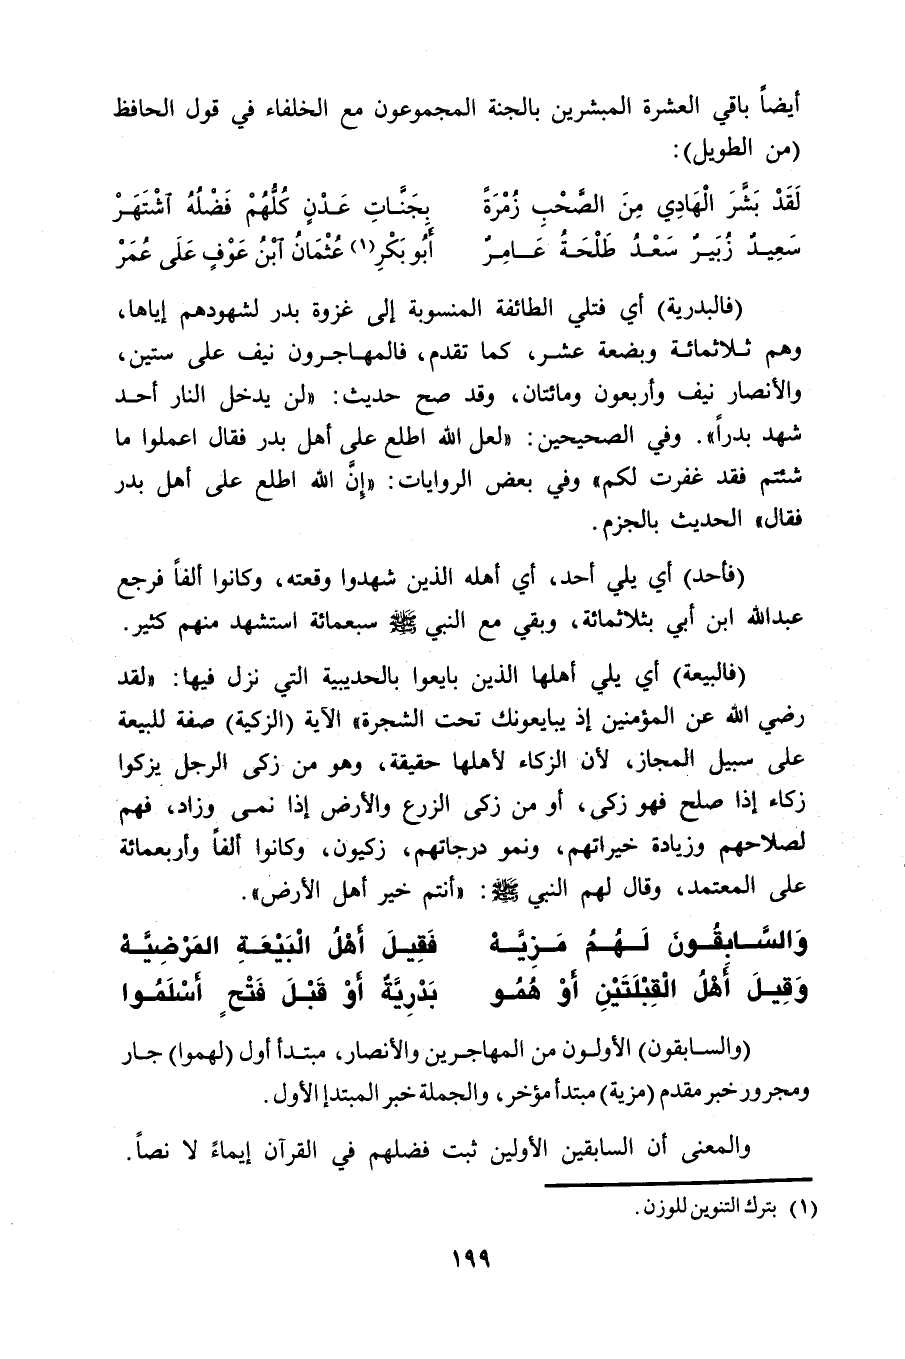 أيضاً باقي العشرة المبشرين بالجنة المجموعون مع الخلفاء في قول الحافظ
(من الطويل):
لَقَدْ بَشَّرَ الْهَادِي مِنَ الصَّحْبِ زُمْرَةً بِجَنَّاتِ عَدْنٍ كُلُّهُمْ فَضْلُهُ ٱشْتَهَرْ
سَعِيدٌ زُبَيرٌ سَعْدٌ طَلْحَةُ عَامِرٌ أَبُو بَكْرِ(١) عُثْمَانُ ٱبْنُ عَوْفٍ عَلَى عُمَرْ
(فالبدرية) أي فتلي الطائفة المنسوبة إلى غزوة بدر لشهودهم إياها،
وهم ثلاثمائة وبضعة عشر، كما تقدم، فالمهاجرون نيف على ستين،
والأنصار نيف وأربعون ومائتان، وقد صح حديث: «لن يدخل النار أحد
شهد بدراً». وفي الصحيحين: «لعل الله اطلع على أهل بدر فقال اعملوا ما
شئتم فقد غفرت لكم» وفي بعض الروايات: «إنَّ الله اطلع على أهل بدر
فقال» الحديث بالجزم.
(فأحد) أي يلي أحد، أي أهله الذين شهدوا وقعته، وكانوا ألفاً فرجع
عبدالله ابن أبي بثلاثمائة، وبقي مع النبي ﷺ سبعمائة استشهد منهم كثير.
(فالبيعة) أي يلي أهلها الذين بايعوا بالحديبية التي نزل فيها: «لقد
رضي الله عن المؤمنين إذ يبايعونك تحت الشجرة» الآية (الزكية) صفة للبيعة
على سبيل المجاز، لأن الزكاء لأهلها حقيقة، وهو من زكى الرجل يزكوا
زكاء إذا صلح فهو زكى، أو من زكى الزرع والأرض إذا نمى وزاد، فهم
لصلاحهم وزيادة خيراتهم، ونمو درجاتهم، زكيون، وكانوا ألفاً وأربعمائة
على المعتمد، وقال لهم النبي ﷺ: «أنتم خير أهل الأرض».
وَالسَّابِقُونَ لَهُمُ مَزِيَّهْ فَقِيلَ أَهْلُ الْبَيْعَةِ المَرْضِيَّهْ
وَقِيلَ أَهْلُ الْقِبْلَتَيْنِ أَوْ هُمُو بَدْرِيَّةٌ أَوْ قَبْلَ فَتْحٍ أَسْلَمُوا
(والسابقون) الأولون من المهاجرين والأنصار، مبتدأ أول (لهموا) جار
ومجرور خبر مقدم (مزية) مبتدأ مؤخر، والجملة خبر المبتدإ الأول.
والمعنى أن السابقين الأولين ثبت فضلهم في القرآن إيماءً لا نصاً.
(١) بترك التنوين للوزن.
١٩٩